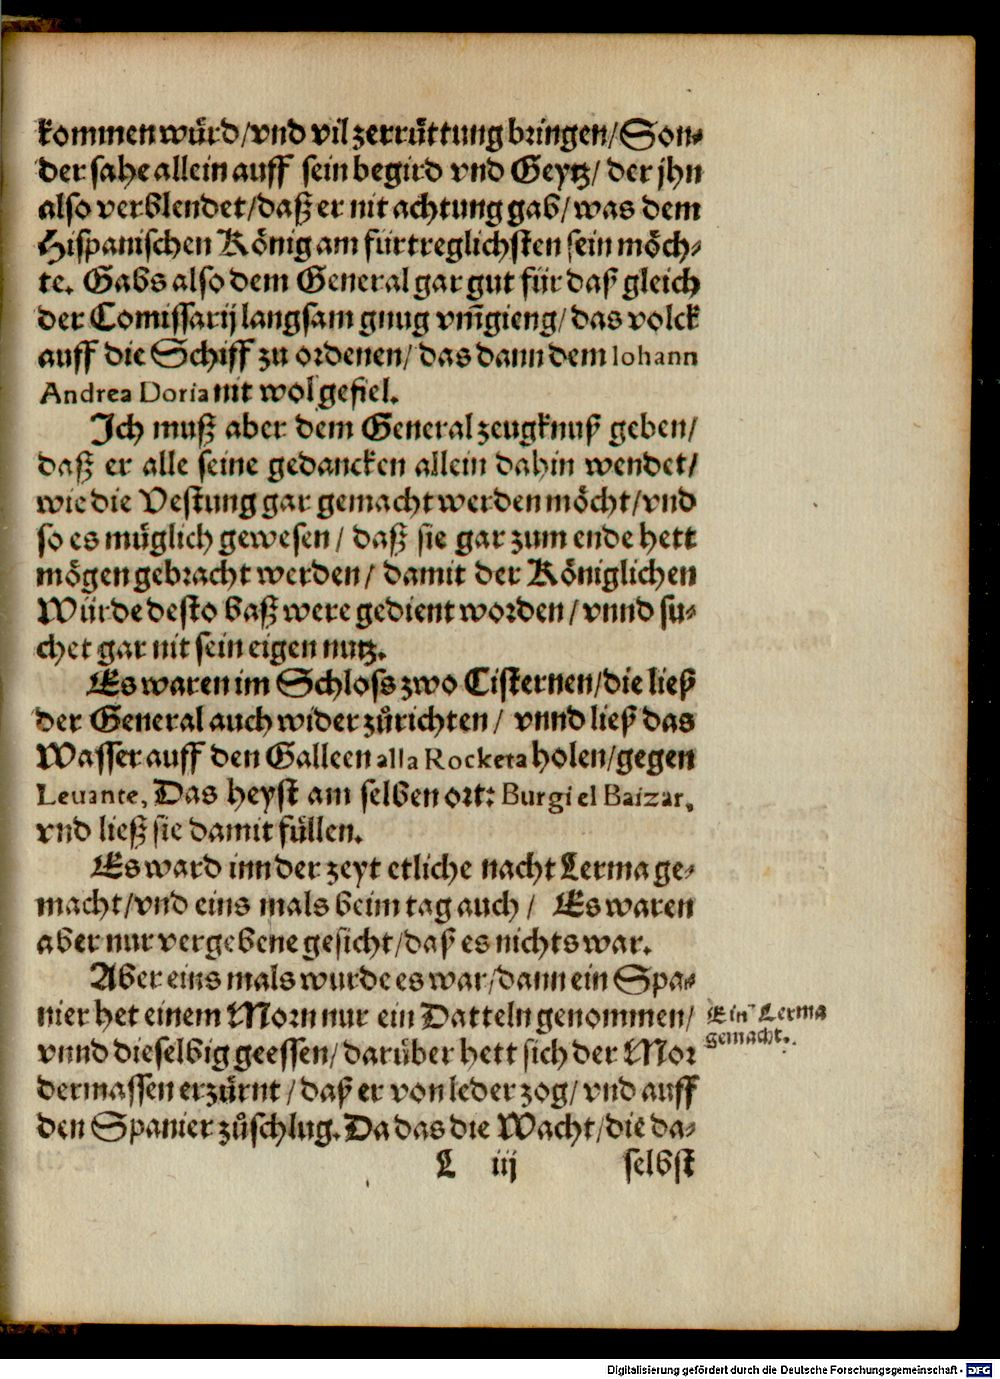 kommen wuͤrd/vnd vil zerruͤttung bringen/Son⸗
der sahe allein auff sein begird vnd Geytz/ der jhn
also verblendet/daß er nit achtung gab/ was dem
Hispanischen Koͤnig am fuͤrtreglichsten sein moͤch⸗
te. Gabs also dem General gar gut fuͤr das gleich
der Comissarij langsam gnug vm̃gieng/ das volck
auff die Schiff zu ordenen/ das dann dem Iohann
Andrea Doria nit wol gefiel.
Ich muß aber dem General zeugknus geben/
daß er alle seine gedancken allein dahin wendet/
wie die Vestung gar gemacht werden moͤcht/vnd
so es muͤglich gewesen / daß sie gar zum ende hett
moͤgen gebracht werden/ damit der Koͤniglichen
Wuͤrde desto baß were gedient worden/ vnnd su⸗
chet gar nit sein eigen nutz.
Es waren im Schloss zwo Cisternen/die lies
der General auch wider zůrichten/ vnnd lies das
Wasser auff den Galleen alla Rocketa holen/gegen
Leuante, Das heyst am selben ort: Burgi el Baizar,
vnd ließ sie damit fuͤllen.
Es ward inn der zeyt etliche nacht Lerma ge⸗
macht/vnd eins mals beim tag auch / Es waren
aber nur vergebene gesicht/das es nichts war.
Aber eins mals wurde es war/dann ein Spa⸗
nier het einem Morn nur ein Datteln genommen/
vnnd dieselbig geessen/ daruͤber hett sich der Mor
dermassen erzuͤrnt / das er von leder zog/ vnd auff
den Spanier zůschlug. Da das die Wacht/die da⸗
Ein Lerma
gemacht.
L iij selbst
Digitalisierung gefördert durch die Deutsche Forschungsgemeinschaft - DFG